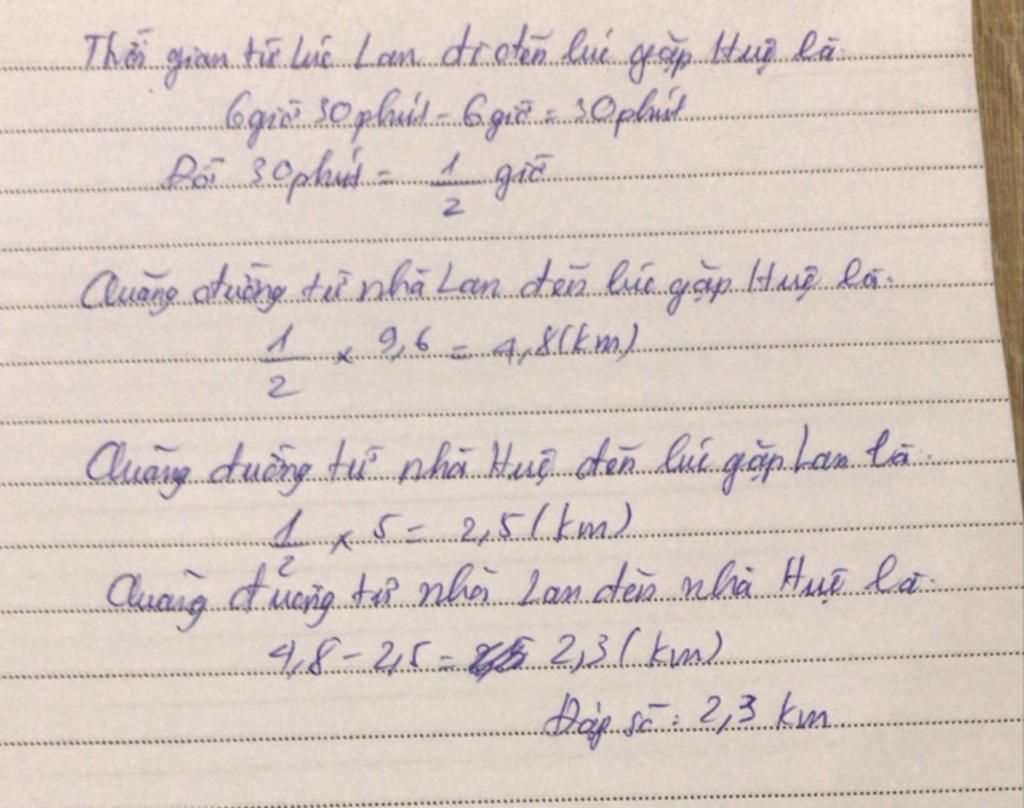 Thời gian từ lúc Lan đi đến lúc gặp Huệ là
6 giờ 30 phút - 6 giờ = 30 phút
Đổi 30 phút = 1/2 giờ
Quãng đường từ nhà Lan đến lúc gặp Huệ là:
1/2 × 9,6 = 4,8 (km)
Quãng đường từ nhà Huệ đến lúc gặp Lan là:
1/2 × 5 = 2,5 (km)
Quãng đường từ nhà Lan đến nhà Huệ là:
4,8 - 2,5 = 2,3 (km)
Đáp số: 2,3 km